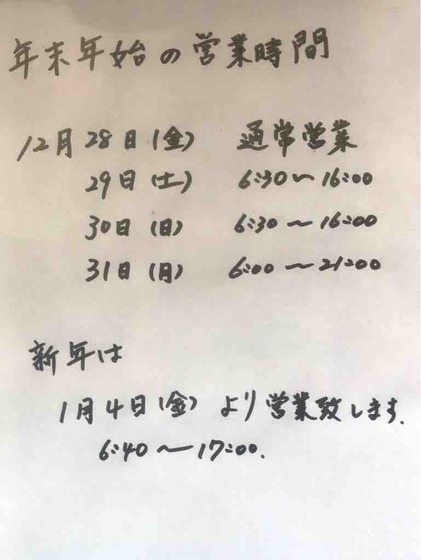 年末年始の営業時間
12月28日(金) 通常営業
29日(土) 6:30〜16:00
30日(日) 6:30〜16:00
31日(月) 6:00〜21:00
新年は
1月4日(金)より営業致します.
6:40〜17:00.